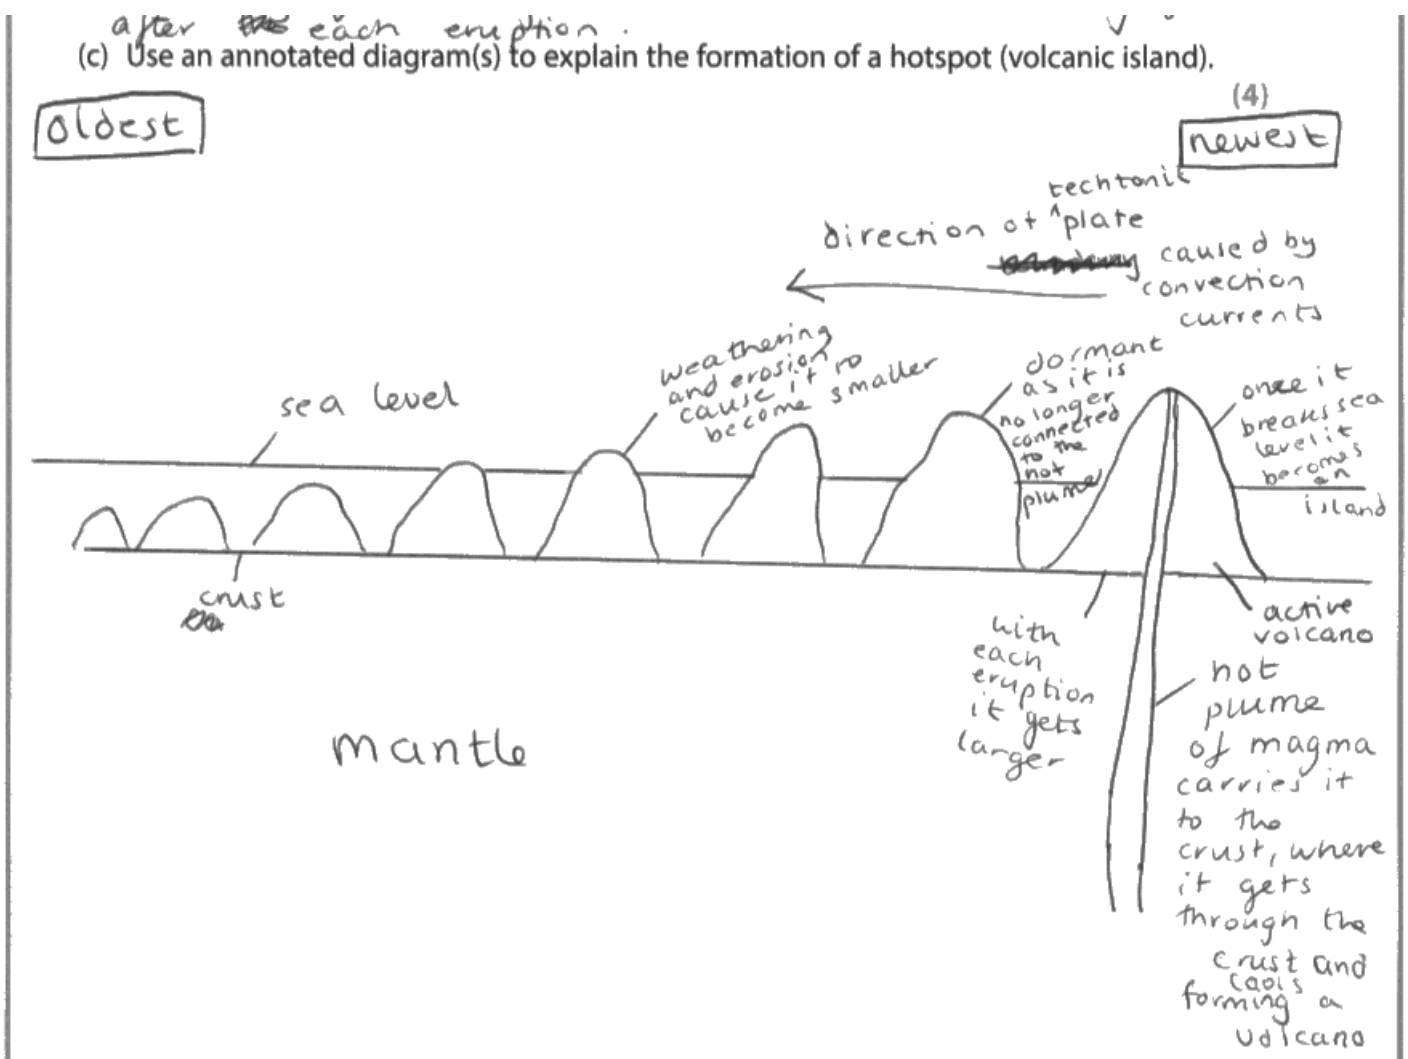 after each eruption.
(c) Use an annotated diagram(s) to explain the formation of a hotspot (volcanic island).
(4)
oldest
newest
techtonic
direction of ^ plate
caused by
convection
currents
sea level
weathering
and erosion
cause it to
become smaller
dormant
as it is
no longer
connected
to the
hot
plume
once it
breaks sea
level it
becomes
an
island
crust
mantle
with
each
eruption
it gets
larger
active
volcano
hot
plume
of magma
carries it
to the
crust, where
it gets
through the
crust and
cools
forming a
volcano